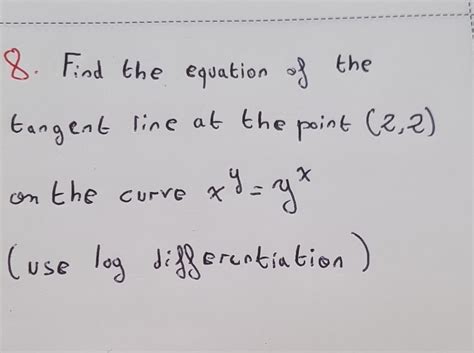 8. Find the equation of the
tangent line at the point (2,2)
on the curve x^y = y^x
(use log differentiation)